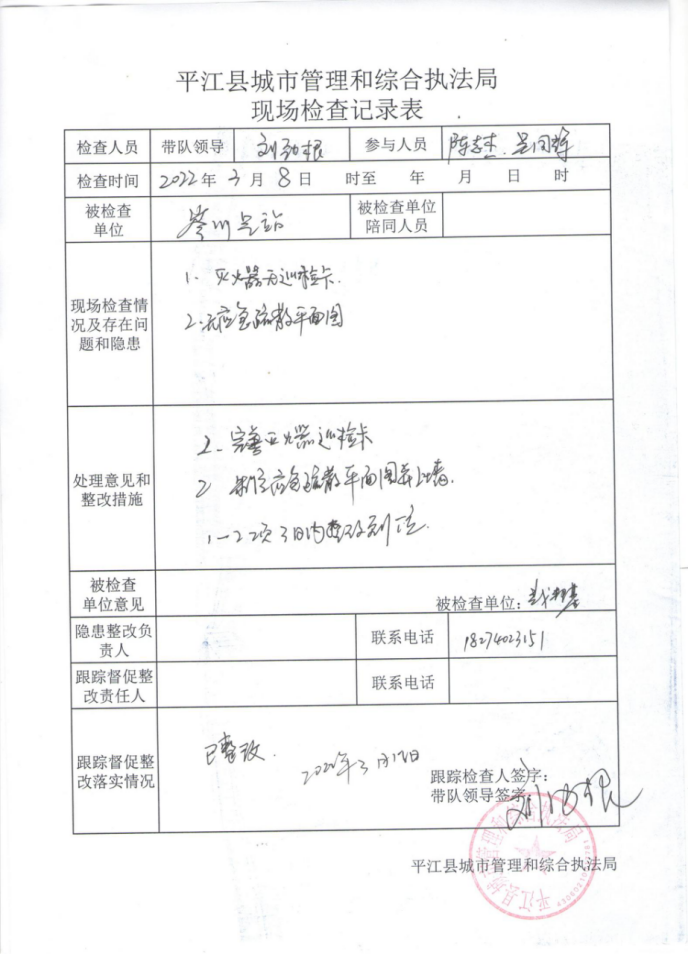 平江县城市管理和综合执法局
现场检查记录表
检查人员 带队领导 刘劲根 参与人员
检查时间 2022年3月8日 时至 年 月 日 时
被检查单位 岑川 站 被检查单位陪同人员
现场检查情况及存在问题和隐患
1. 灭火器无巡检卡.
2. 无应急疏散平面图
处理意见和整改措施
1. 完善灭火器巡检卡
2 制定应急疏散平面图并上墙.
1—2项3日内整改到位.
被检查单位意见 被检查单位:
隐患整改负责人 联系电话 18274023151
跟踪督促整改责任人 联系电话
跟踪督促整改落实情况
已整改.
2022年3月12日
跟踪检查人签字:
带队领导签字: 刘劲根
平江县城市管理和综合执法局
平江县城市管理和综合执法局